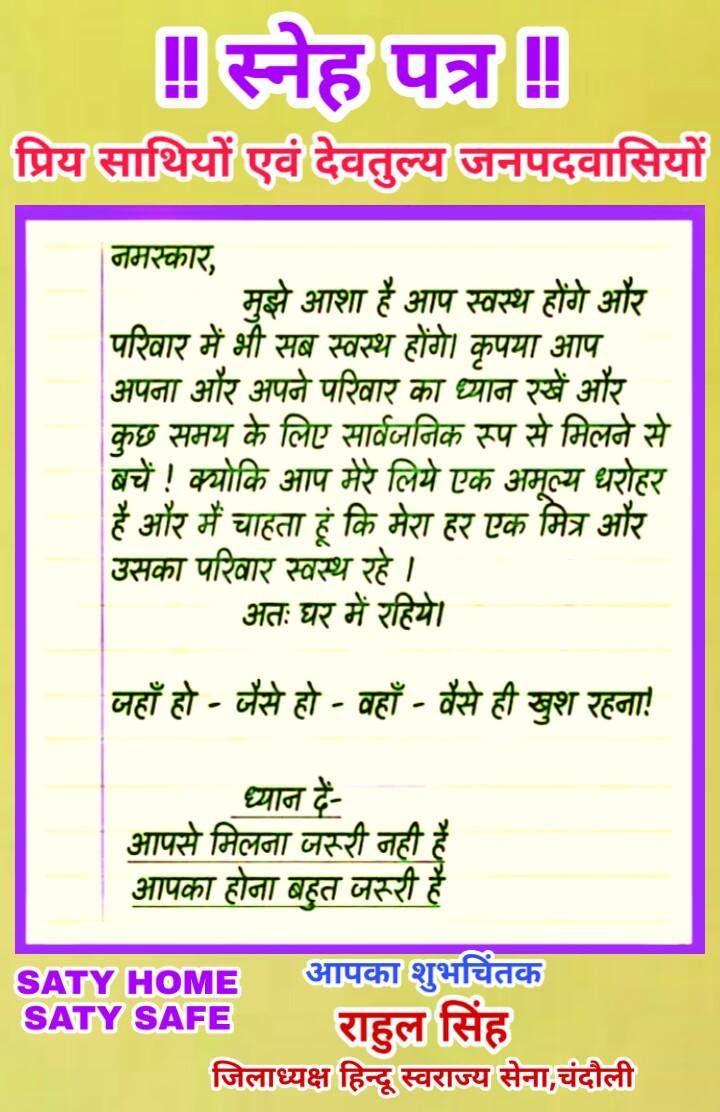 !! स्नेह पत्र !!
प्रिय साथियों एवं देवतुल्य जनपदवासियों
नमस्कार,
मुझे आशा है आप स्वस्थ होंगे और
परिवार में भी सब स्वस्थ होंगे। कृपया आप
अपना और अपने परिवार का ध्यान रखें और
कुछ समय के लिए सार्वजनिक रूप से मिलने से
बचें ! क्योकि आप मेरे लिये एक अमूल्य धरोहर
है और मैं चाहता हूं कि मेरा हर एक मित्र और
उसका परिवार स्वस्थ रहे ।
अतः घर में रहिये।
जहाँ हो - जैसे हो - वहाँ - वैसे ही खुश रहना!
ध्यान दें-
आपसे मिलना जरूरी नही है
आपका होना बहुत जरूरी है
SATY HOME
SATY SAFE
आपका शुभचिंतक
राहुल सिंह
जिलाध्यक्ष हिन्दू स्वराज्य सेना,चंदौली